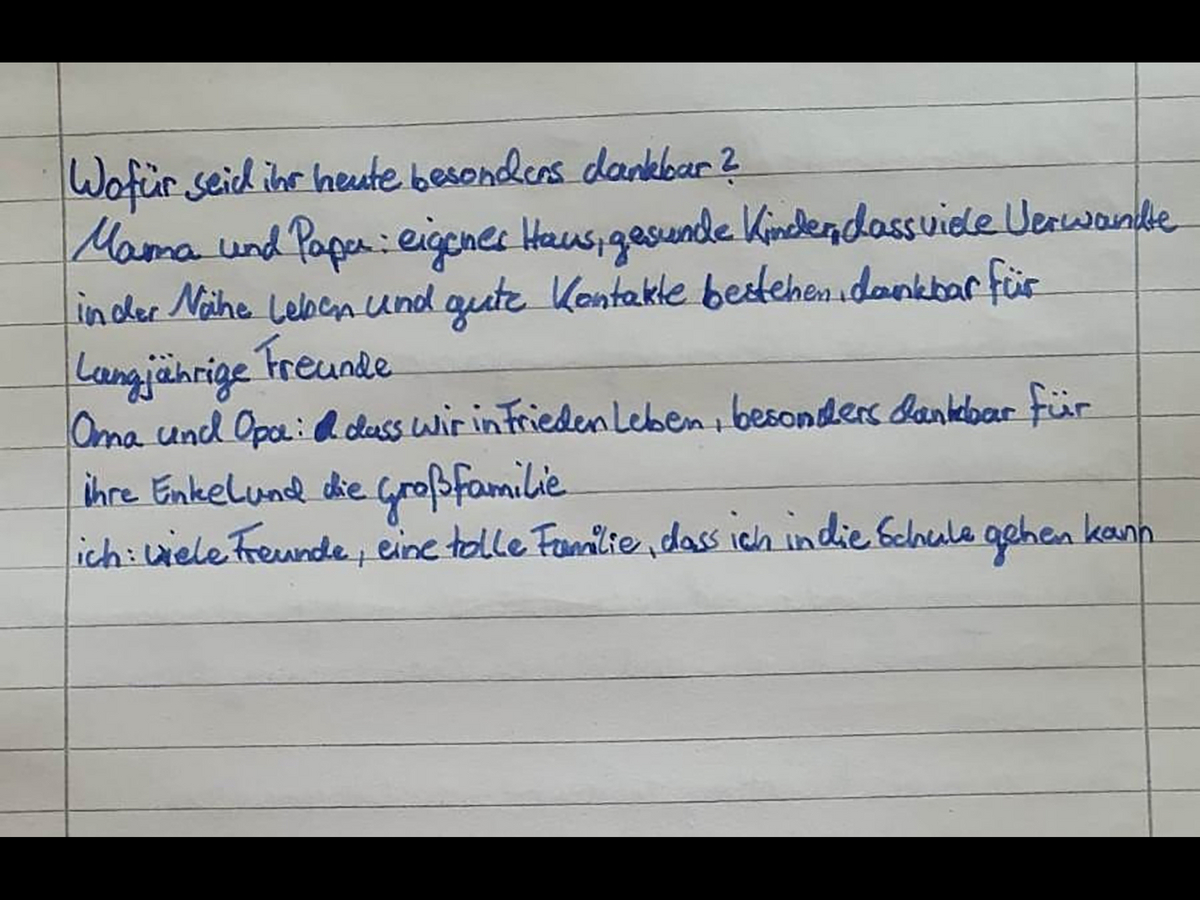 Wofür seid ihr heute besonders dankbar?
Mama und Papa: eigenes Haus, gesunde Kinder, dass viele Verwandte
in der Nähe leben und gute Kontakte bestehen, dankbar für
langjährige Freunde
Oma und Opa: dass wir in Frieden leben, besonders dankbar für
ihre Enkel und die Großfamilie
ich: viele Freunde, eine tolle Familie, dass ich in die Schule gehen kann